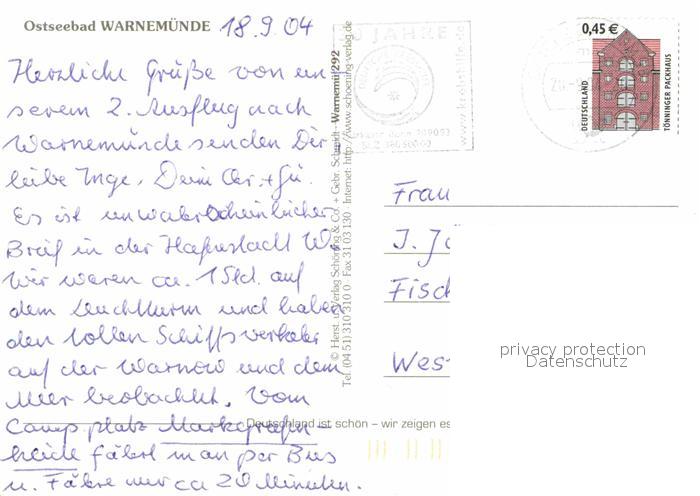 Ostseebad WARNEMÜNDE 18.9.04
Herzliche Grüße von un
serem 2. Ausflug nach
Warnemünde senden Dir
liebe Inge, Deine
Es ist unwahrscheinlicher
in der Hafenstadt W.
Wir waren ca. 1 Std. auf
dem Leuchtturm und haben
den tollen Schiffsverkehr
auf der Warnow und dem
Meer beobachtet. Vom
Campplatz Markgrafen-
heide fährt man per Bus
u. Fähre nur ca 20 Minuten.
© Herst. u. Verlag Schöning & Co. + Gebr. Schmidt - Warnemü 292
Tel. (04 51) 310 310 0 · Fax 31 03 130 · Internet: http://www.schoening-verlag.de
Deutschland ist schön – wir zeigen es
JAHRE
0,45 €
DEUTSCHLAND
TÖNNINGER PACKHAUS
Frau
Fisch
Wes
privacy protection
Datenschutz